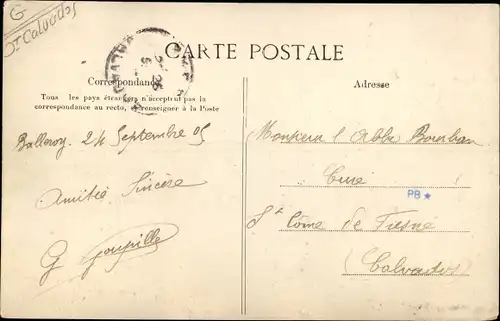 G
Dt Calvados
CARTE POSTALE
Correspondance
Tous les pays étrangers n'acceptent pas la
correspondance au recto, se renseigner à la Poste
Balleroy 24 Septembre 05
Amitié Sincère
G Goupille
Adresse
Monsieur l'Abbé Bourban
Curé
PB
St Côme de Fresné
(Calvados)